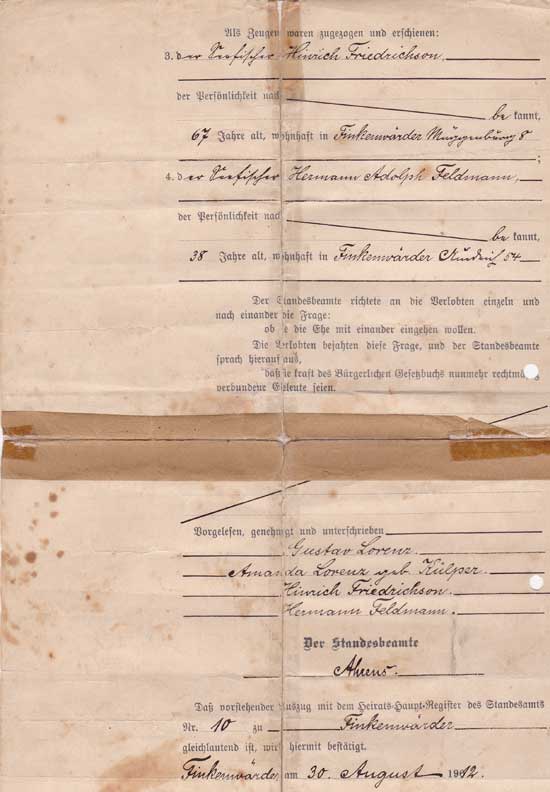 Als Zeugen waren zugezogen und erschienen:
3. der Seefischer Hinrich Friedrichson,
der Persönlichkeit nach
be kannt,
67 Jahre alt, wohnhaft in Finkenwärder Müggenburg 8
;
4. der Seefischer Hermann Adolph Feldmann,
der Persönlichkeit nach
be kannt,
38 Jahre alt, wohnhaft in Finkenwärder 54
Der Standesbeamte richtete an die Verlobten einzeln und
nach einander die Frage:
ob sie die Ehe mit einander eingehen wollen.
Die Verlobten bejahten diese Frage, und der Standesbeamte
sprach hierauf aus,
daß sie kraft des Bürgerlichen Gesetzbuchs nunmehr rechtmäßig
verbundene Eheleute seien.
Vorgelesen, genehmigt und unterschrieben
Gustav Lorenz.
Amanda Lorenz geb. Külper.
Hinrich Friedrichson.
Hermann Feldmann.
Der Standesbeamte
Ahrens.
Daß vorstehender Auszug mit dem Heirats-Haupt-Register des Standesamts
Nr. 10 zu Finkenwärder
gleichlautend ist, wird hiermit bestätigt.
Finkenwärder, am 30. August 1912.